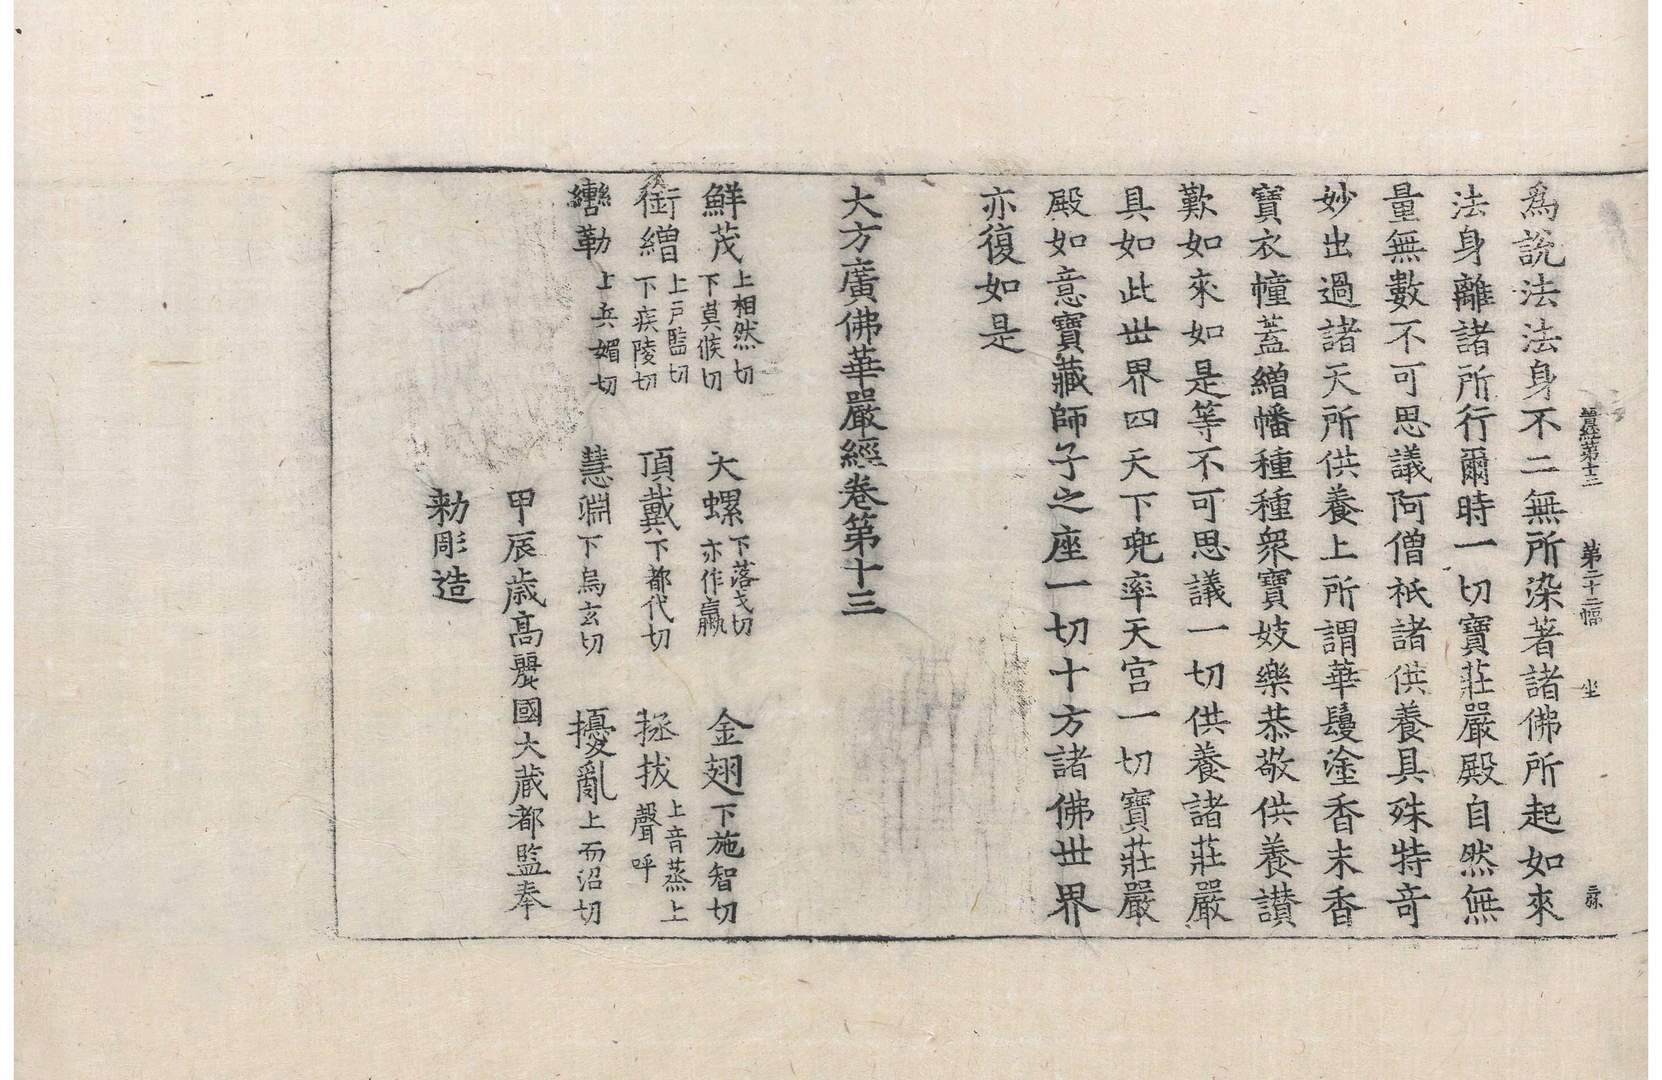 晉經第十三 第二十二幅 坐
為說法法身不二無所染著諸佛所起如來
法身離諸所行爾時一切寶莊嚴殿自然無
量無數不可思議阿僧祇諸供養具殊特奇
妙出過諸天所供養上所謂華鬘塗香末香
寶衣幢蓋繒幡種種衆寶妓樂恭敬供養讃
歎如來如是等不可思議一切供養諸莊嚴
具如此世界四天下兜率天宮一切寶莊嚴
殿如意寶藏師子之座一切十方諸佛世界
亦復如是
大方廣佛華嚴經卷第十三
鮮茂上相然切下莫候切 大螺下落戈切亦作蠃 金翅下施智切
銜繒上戸監切下疾陵切 頂戴下都代切 拯拔上音蒸上聲呼
轡勒上兵媚切 慧淵下烏玄切 擾亂上而沼切
甲辰歲高麗國大藏都監奉
勅彫造